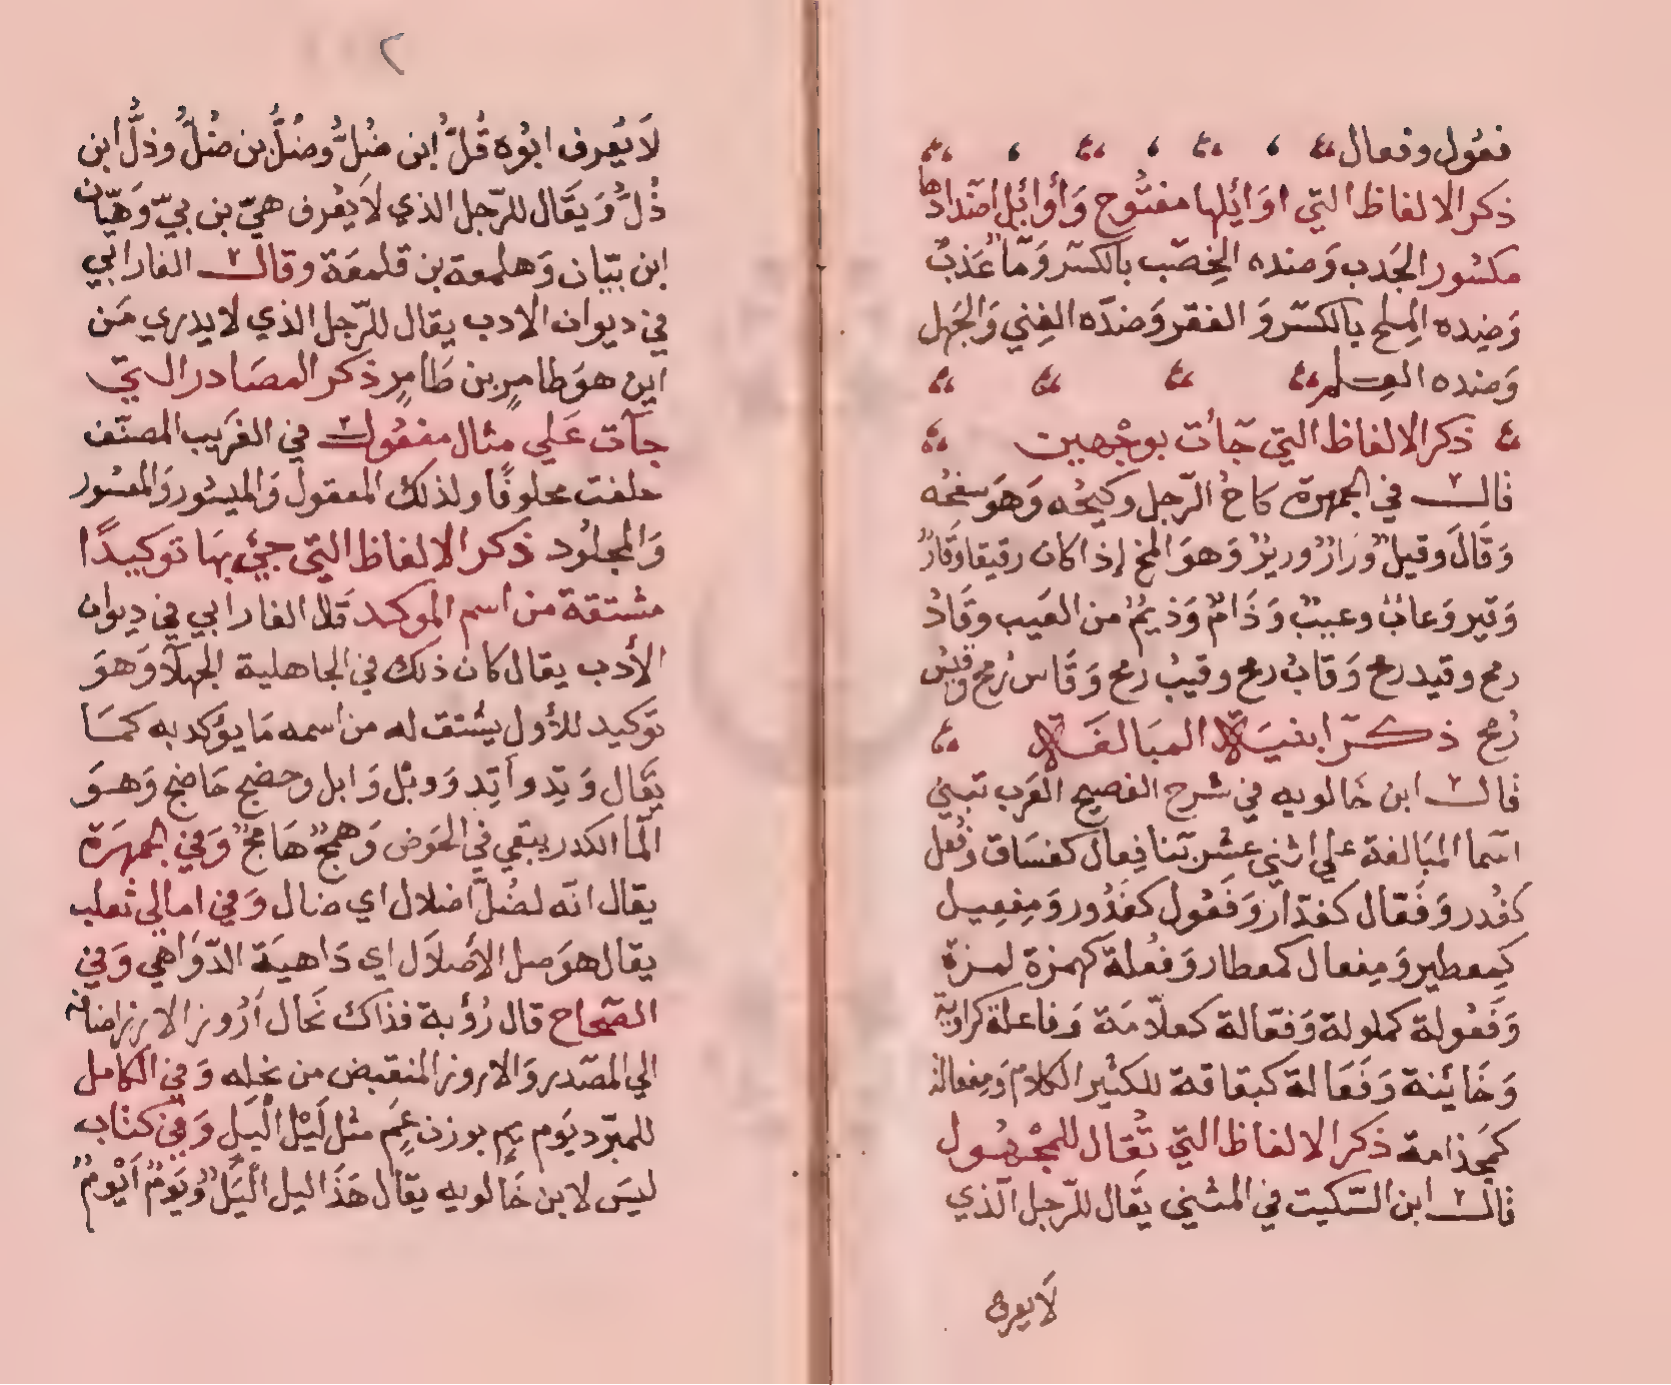 فعُول وفعال
ذكر الالفاظ التي اوَائِلها مفتُوح وَأوَائل اضدادها
مكسُور الجَدب وَضده الخِصب بالكسر وَمَا عَذبٌ
وَضِده المِلح بالكسر وَ الفقر وَضدّه الغِني وَالجَهل
وَضده العِلم
ذكر الالفاظ التي جَاءت بوجْهين
قال في الجمهرة كاحُ الرّجل وكيحُه وَهوَ سفحُه
وَقَالَ وقيلٌ وَرَارٌ وريرٌ وَهوَ المخ إذا كان رقيقا وَقارٌ
وَقير وَعابٌ وعيبٌ وَذَامٌ وَذيمٌ من العَيب وقَادُ
رمح وقيد رمح وَقابُ رمح وقيبُ رمح وَقَاس رُمح وقيسُ
رُمح ذكر ابنيَة المبَالغَة
قال ابن خَالويه في شرح الفصيح العَرب تبني
اسما المبَالغة علي اثني عشَر بَنا فِعال كفسَاق وَفُعل
كغُدر وَفَعّال كغدّار وَفَعُول كغَدُور وَمِفعِيل
كمِعطير وَمِفعال كمعطار وَفُعلة كهُمزة لمزة
وَفَعُولة كملولة وَفعّالة كعلّامَة وَفاعلة كراوية
وَخَائنة وَفَعَالة كبقاقة للكثير الكلام وَمِفعالة
كمِجذامة ذكر الالفاظ التي تُقال للمجْهُول
قال ابن السّكيت في المثني يقَال للرّجل الّذي
لَا يعرف
٢
لَا يُعرف ابُوه قُلّ ابن ضُلّ وضُلّ بن ضُلّ وذلّ ابن
ذُلّ وَيقَال للرّجل الذي لَا يُعْرف هيّ بن بيّ وَهَيّان
ابن بيّان وَهلمعة بن قلمعَة وقال الفارابي
في ديوان الادب يقال للرّجل الذي لا يدري مَن
اين هوَ طامرٍ بن طَامرٍ ذكر المصَادر التي
جآت عَلي مثال مفعُول في الغَريب المصنّف
حلفت محلوفًا ولذلك المعقول وَالميسُور وَالمعسُور
وَالمجلُود ذكر الالفاظ التي جيْء بهَا توكيدًا
مشتقة من اسم الموكد قَال الفارابي في ديوان
الأدب يقال كان ذلك في الجاهلية الجهلآ وَهوَ
توَكيد للأول يشتق له من اسمه مَا يؤكد به كمَا
يقَال وَتِد واتِد وَوبْل وَابل وحضج حَاضج وَهوَ
المآ الكدر يبقي في الحَوض وَهمجٌ هَامجٌ وَفي الجمهَرة
يقال انّه لضُلّ اضلال اي ضال وَفي امالي ثعلب
يقال هوَ صل الأصْلاَل اي دَاهيَة الدّوَاهي وَفي
الصّحاح قال رُؤبة فذاك نَخال أرُوز الارز اضافة
الي المصّدر وَالاروز المنقبض من بخله وَفي الكامل
للمبرّد يَوم يمٍ بوزن عِمَ مثل لَيْل ألْيَل وَفي كتَاب
ليسَ لابن خَالويه يقال هَذَا ليل ألْيَلٌ وَيَومٌ أيْومٌ